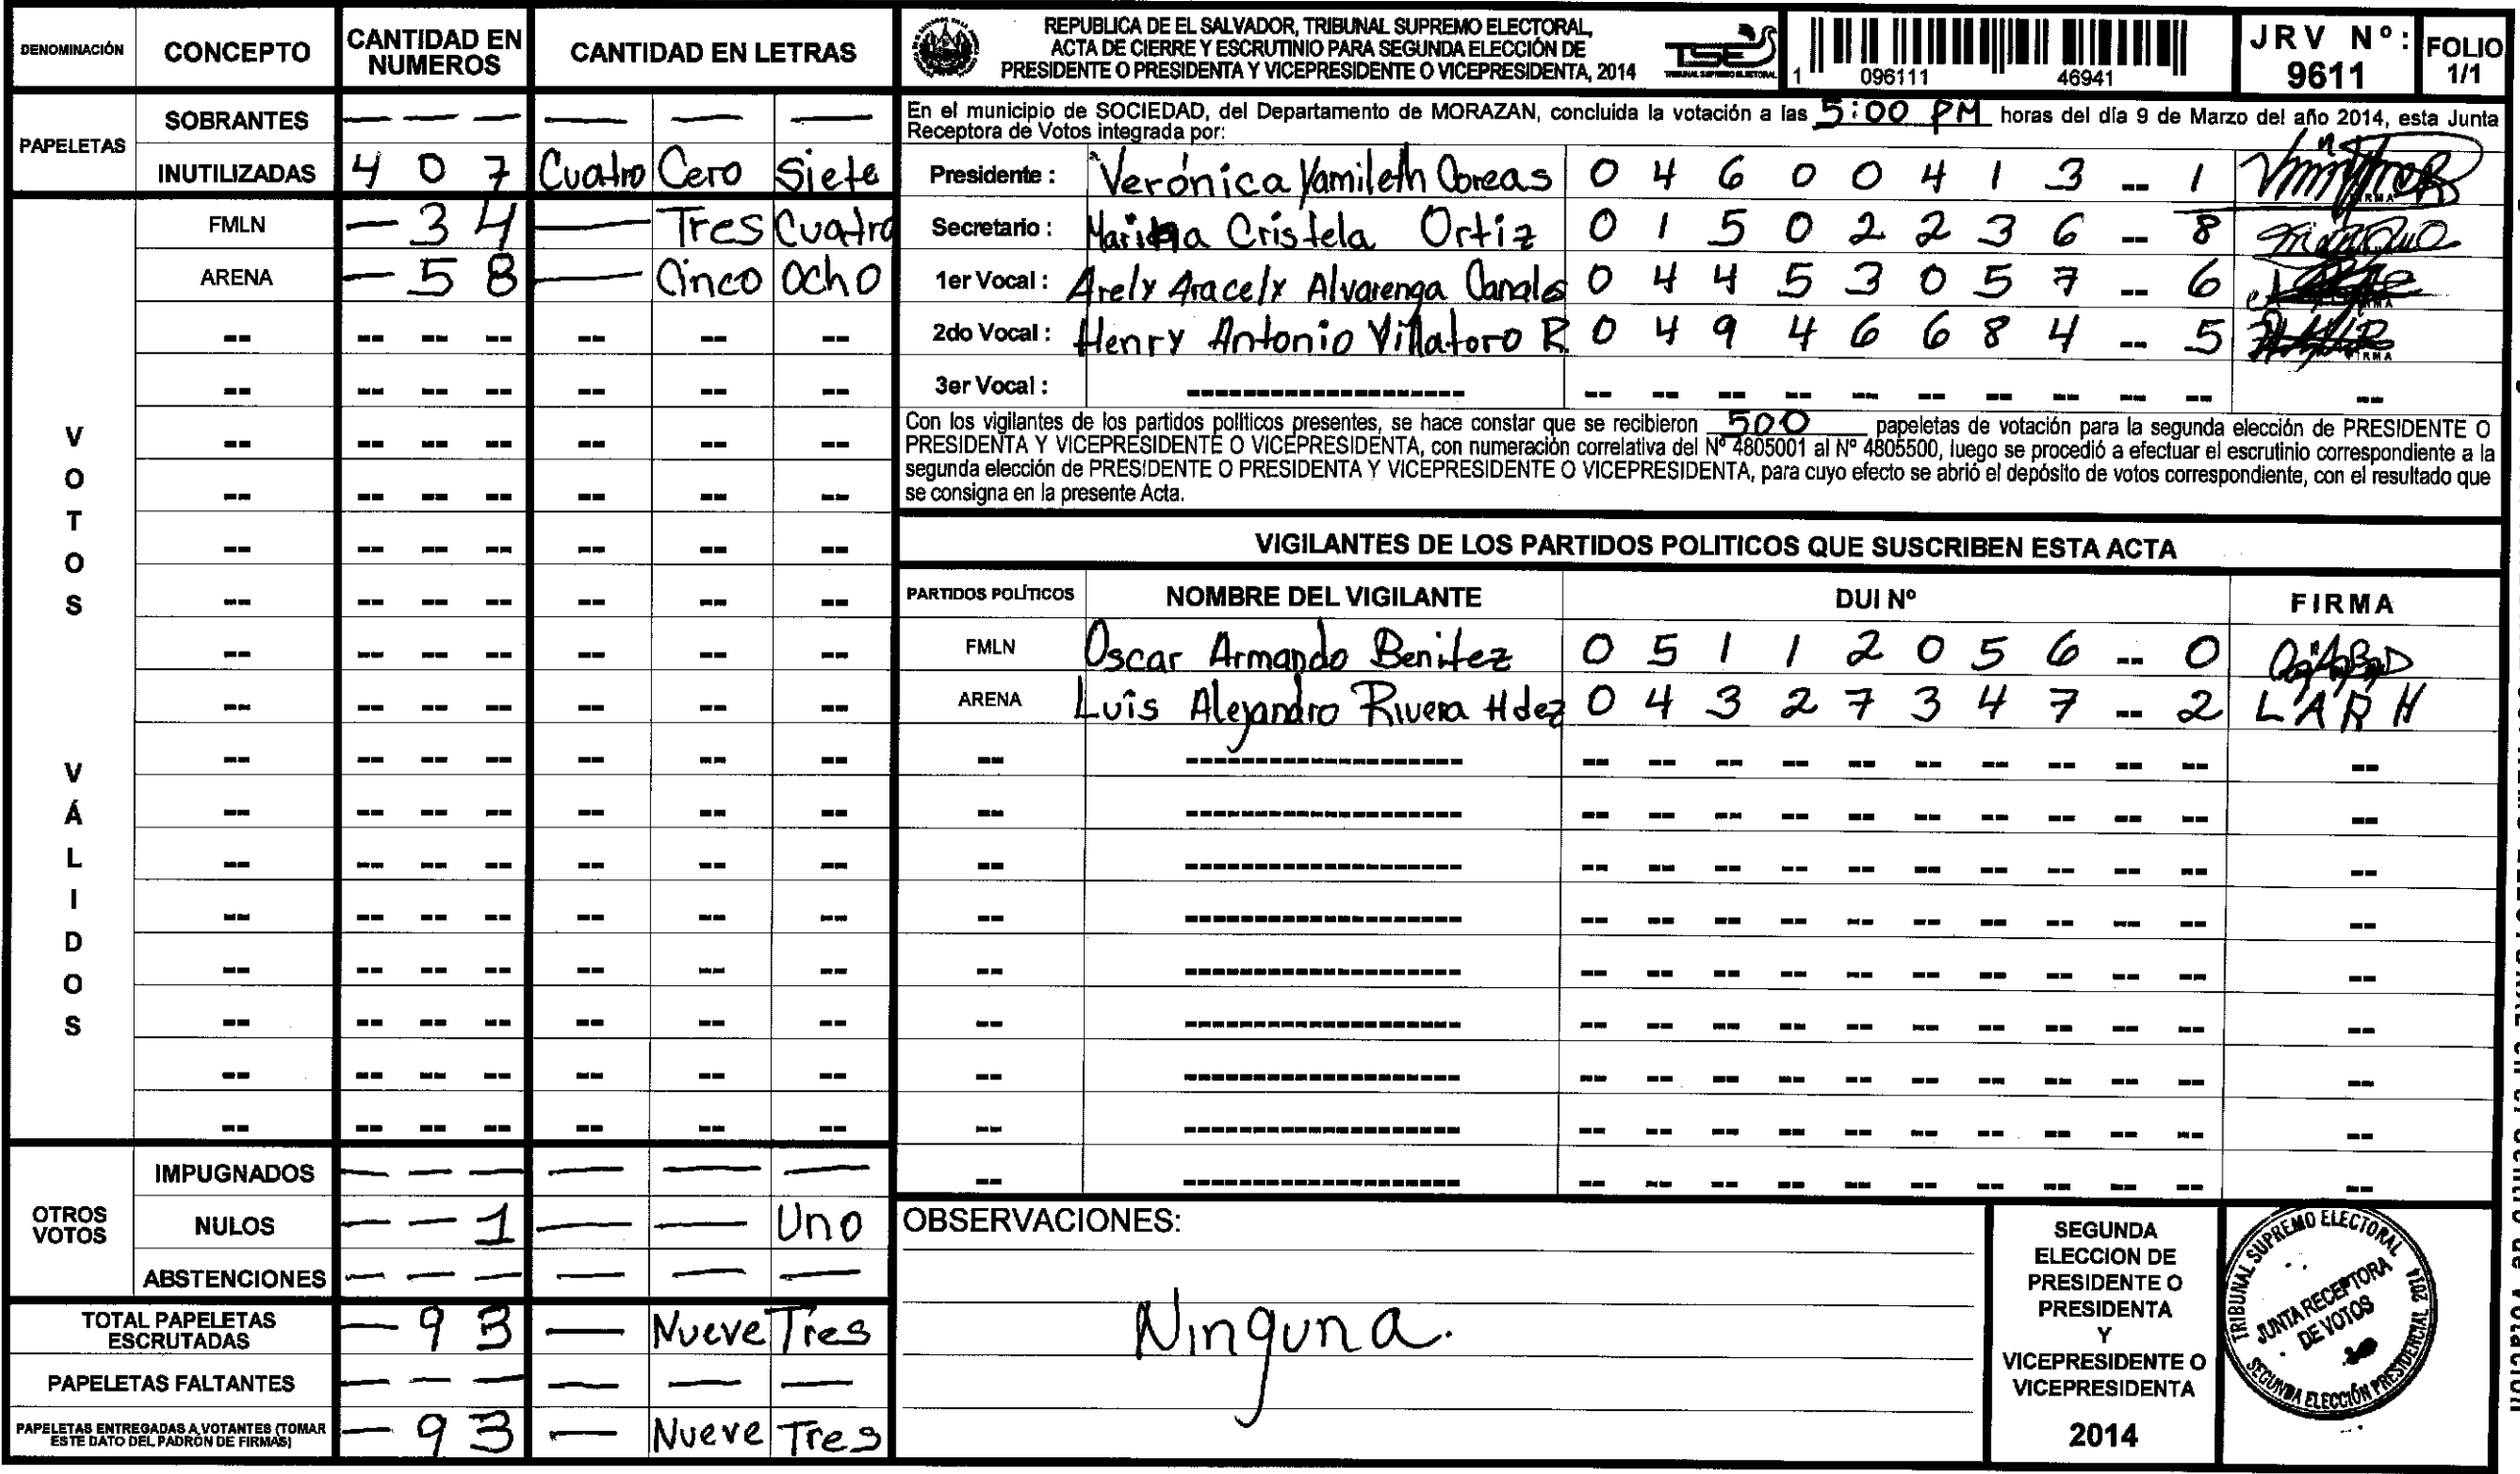 DENOMINACIÓN CONCEPTO CANTIDAD EN NUMEROS CANTIDAD EN LETRAS
PAPELETAS
SOBRANTES — — — — — —
INUTILIZADAS 4 0 7 Cuatro Cero Siete
VOTOS VÁLIDOS
FMLN — 3 4 — Tres Cuatro
ARENA — 5 8 — Cinco Ocho
OTROS VOTOS
IMPUGNADOS — — — — — —
NULOS — — 1 — — Uno
ABSTENCIONES — — — — — —
TOTAL PAPELETAS ESCRUTADAS — 9 3 — Nueve Tres
PAPELETAS FALTANTES — — — — — —
PAPELETAS ENTREGADAS A VOTANTES (TOMAR ESTE DATO DEL PADRÓN DE FIRMAS) — 9 3 — Nueve Tres
REPUBLICA DE EL SALVADOR, TRIBUNAL SUPREMO ELECTORAL,
ACTA DE CIERRE Y ESCRUTINIO PARA SEGUNDA ELECCIÓN DE
PRESIDENTE O PRESIDENTA Y VICEPRESIDENTE O VICEPRESIDENTA, 2014
TSE
TRIBUNAL SUPREMO ELECTORAL
1 096111 46941
JRV Nº: 9611
FOLIO 1/1
En el municipio de SOCIEDAD, del Departamento de MORAZAN, concluida la votación a las 5:00 PM horas del día 9 de Marzo del año 2014, esta Junta
Receptora de Votos integrada por:
Presidente : Verónica Yamileth Coreas 0 4 6 0 0 4 1 3 -- 1
Secretario : Cristela Ortiz 0 1 5 0 2 2 3 6 -- 8
1er Vocal : Arely Aracely Alvarenga Canales 0 4 4 5 3 0 5 7 -- 6
2do Vocal : Henry Antonio Villatoro R. 0 4 9 4 6 6 8 4 -- 5
3er Vocal :
Con los vigilantes de los partidos políticos presentes, se hace constar que se recibieron 500 papeletas de votación para la segunda elección de PRESIDENTE O
PRESIDENTA Y VICEPRESIDENTE O VICEPRESIDENTA, con numeración correlativa del Nº 4805001 al Nº 4805500, luego se procedió a efectuar el escrutinio correspondiente a la
segunda elección de PRESIDENTE O PRESIDENTA Y VICEPRESIDENTE O VICEPRESIDENTA, para cuyo efecto se abrió el depósito de votos correspondiente, con el resultado que
se consigna en la presente Acta.
VIGILANTES DE LOS PARTIDOS POLITICOS QUE SUSCRIBEN ESTA ACTA
PARTIDOS POLÍTICOS NOMBRE DEL VIGILANTE DUI Nº FIRMA
FMLN Oscar Armando Benitez 0 5 1 1 2 0 5 6 -- 0
ARENA Luis Alejandro Rivera Hdez 0 4 3 2 7 3 4 7 -- 2 LARH
OBSERVACIONES:
Ninguna.
SEGUNDA
ELECCION DE
PRESIDENTE O
PRESIDENTA
Y
VICEPRESIDENTE O
VICEPRESIDENTA
2014
TRIBUNAL SUPREMO ELECTORAL
JUNTA RECEPTORA
DE VOTOS
SEGUNDA ELECCIÓN PRESIDENCIAL 2014